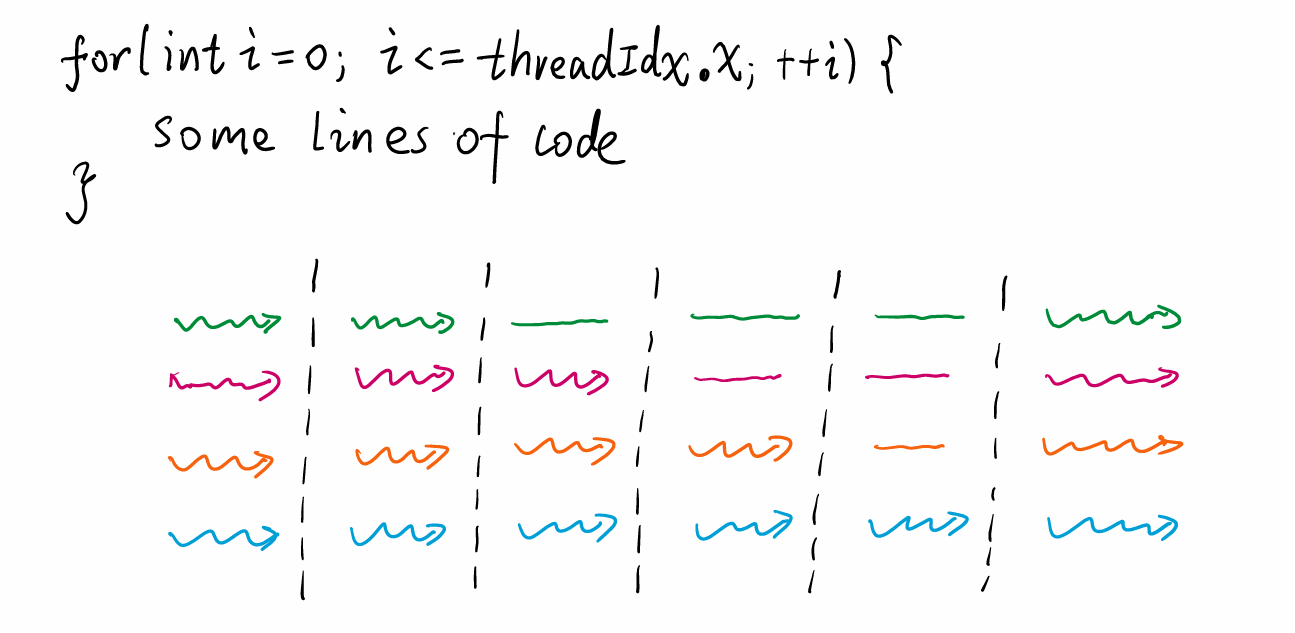 for(int i=0; i<=threadIdx.x; ++i) {
some lines of code
}